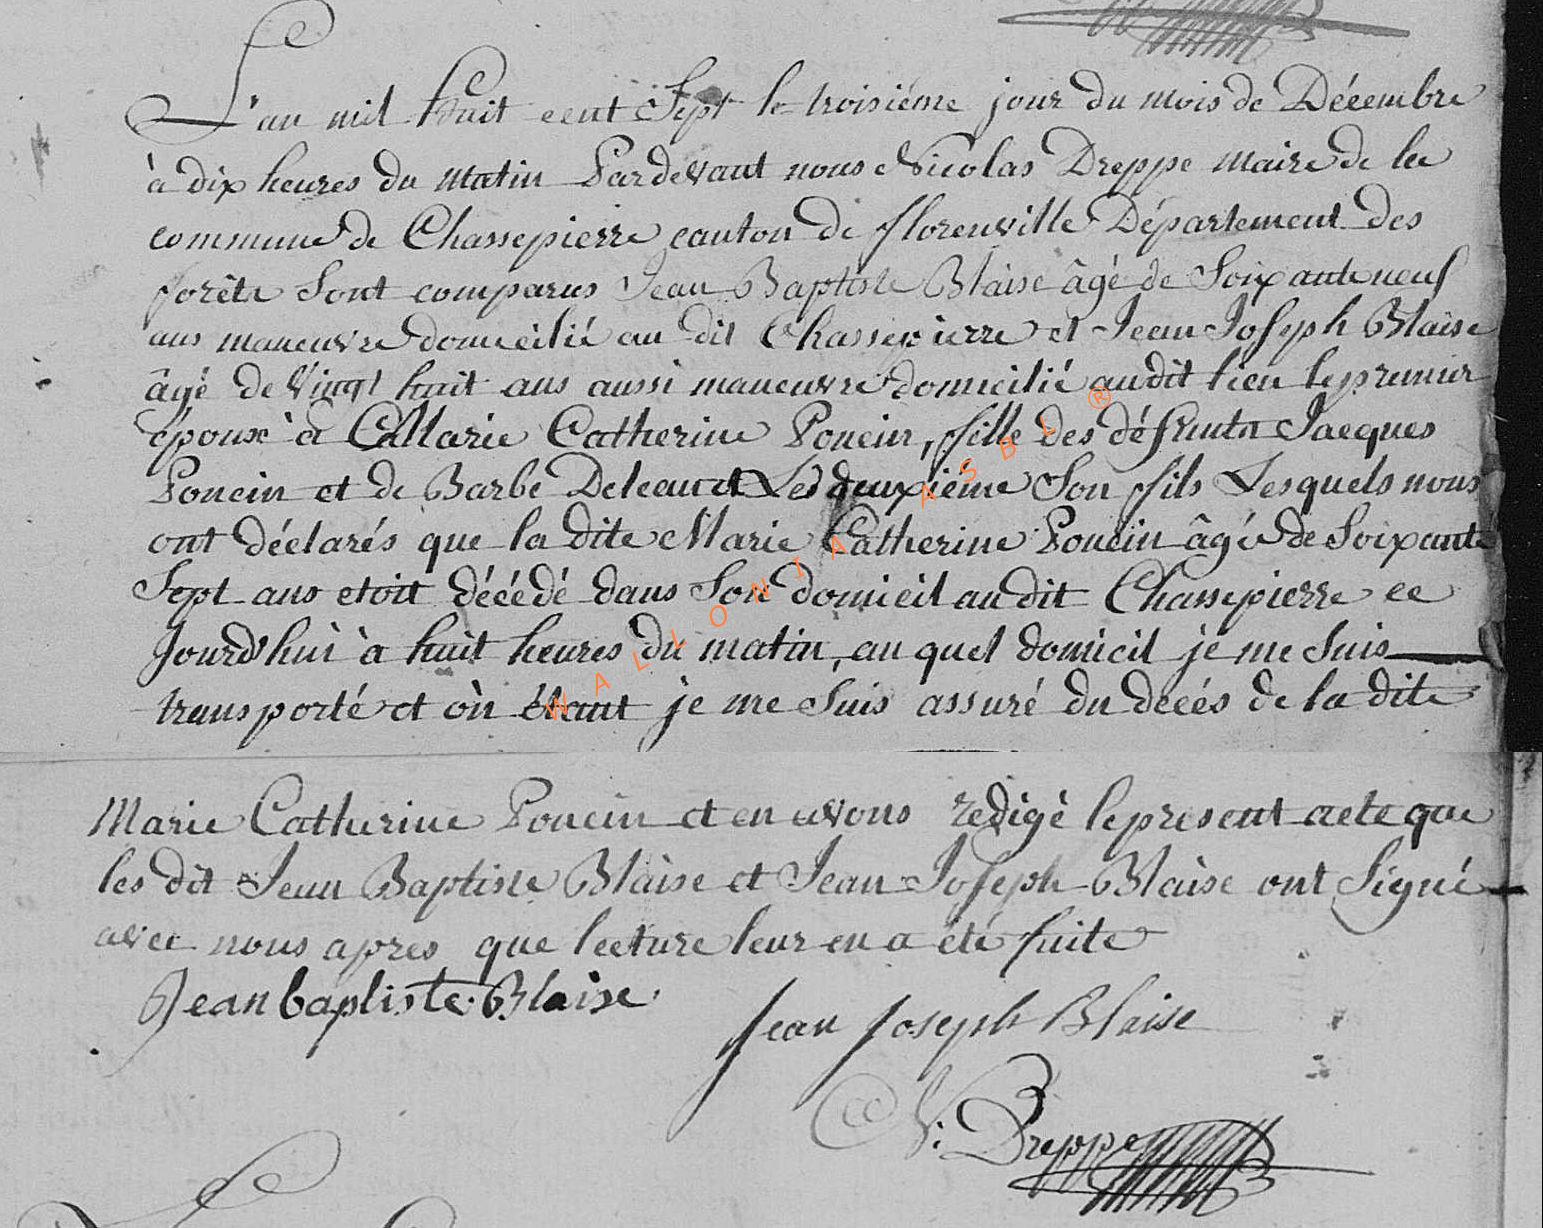 L'an mil huit cent Sept le troisiéme jour du mois de Décembre
à dix heures du matin Pardevant nous Nicolas Dreppe maire de la
commune de Chassepierre canton de florenville Département des
forêts Sont comparus Jean Baptiste Blaise âgé de Soixante neuf
ans maneuvre domicilié au dit Chassepierre et Jean Joseph Blaise
âgé de Vingt huit ans aussi maneuvre domicilié audit lieu le premier
epoux à Marie Catherine Poncin, fille des défunts Jacques
Poncin et de Barbe Deleau et Les deuxiéme Son fils Lesquels nous
ont déclarés que la dite Marie Catherine Poncin âgée de Soixante
Sept ans etoit décédé dans Son domicil au dit Chassepierre ce
Jourd'hui à huit heures du matin, au quel domicil je me Suis
transporté et où étant je me Suis assuré du decés de la dite
Marie Catherine Poncin et en avons redigé le present acte que
les dit Jean Baptiste Blaise et Jean Joseph Blaise ont Signé
avec nous apres que lecture leur en a été faite
Jean baptiste Blaise
Jean Joseph Blaise
N: Dreppe
WALLONIA ASBL ®